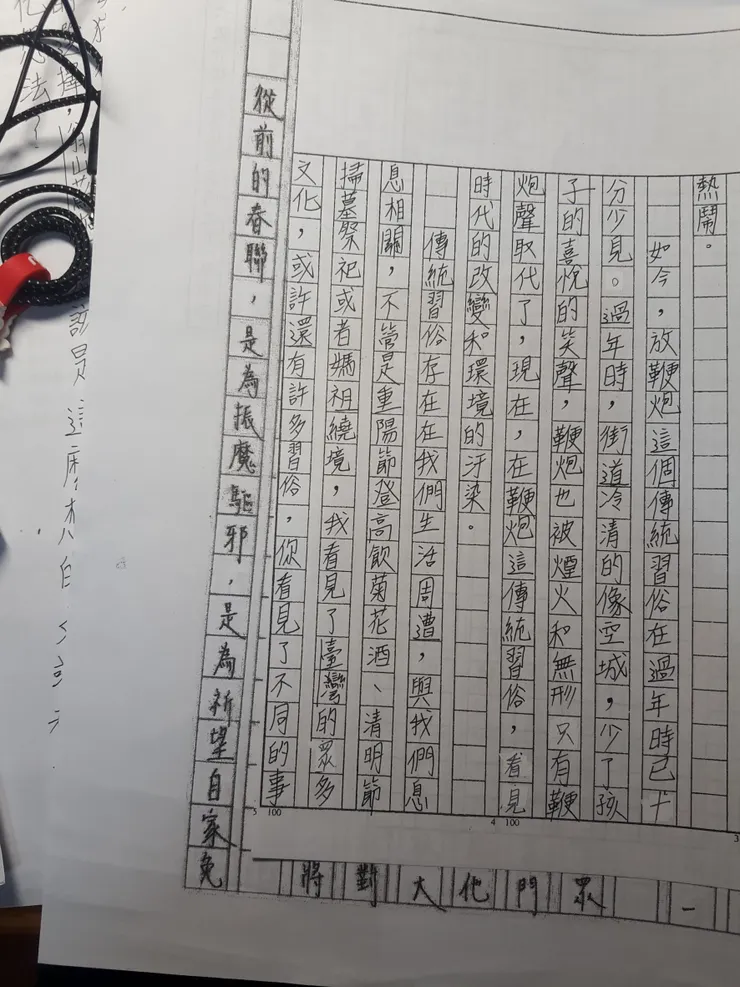 熱鬧。
如今，放鞭炮這個傳統習俗在過年時已十
分少見。過年時，街道冷清的像空城，少了孩
子的喜悅的笑聲，鞭炮也被煙火和無形只有鞭
炮聲取代了，現在，在鞭炮這傳統習俗，看見
時代的改變和環境的汙染。
傳統習俗存在在我們生活周遭，與我們息
息相關，不管是重陽節登高飲菊花酒、清明節
掃墓祭祀或者媽祖繞境，我看見了臺灣的眾多
文化，或許還有許多習俗，你看見了不同的事
從前的春聯，是為振魔驅邪，是為祈望自家免
將對大他門眾一